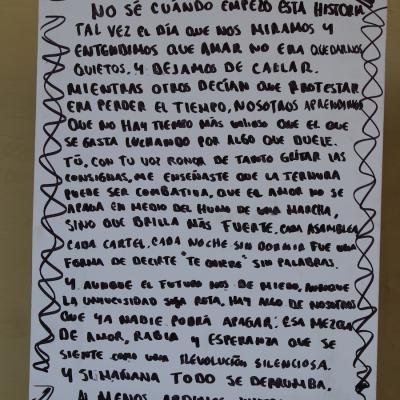 NO SÉ CUÁNDO EMPEZÓ ESTA HISTORIA
TAL VEZ EL DÍA QUE NOS MIRAMOS Y
ENTENDIMOS QUE AMAR NO ERA QUEDARNOS
QUIETOS. Y DEJAMOS DE CALLAR.
MIENTRAS OTROS DECÍAN QUE PROTESTAR
ERA PERDER EL TIEMPO, NOSOTROS APRENDIMOS
QUE NO HAY TIEMPO MÁS VALIOSO QUE EL QUE
SE GASTA LUCHANDO POR ALGO QUE DUELE.
TÚ, CON TU VOZ RONCA DE TANTO GRITAR LAS
CONSIGNAS, ME ENSEÑASTE QUE LA TERNURA
PUEDE SER COMBATIVA, QUE EL AMOR NO SE
APAGA EN MEDIO DEL HUMO DE UNA MARCHA,
SINO QUE BRILLA MÁS FUERTE. CADA ASAMBLEA
CADA CARTEL, CADA NOCHE SIN DORMIR FUE UNA
FORMA DE DECIRTE "TE QUIERO" SIN PALABRAS.
Y AUNQUE EL FUTURO NOS DE MIEDO, AUNQUE
LA UNIVERSIDAD SIGA ROTA, HAY ALGO DE NOSOTROS
QUE YA NADIE PODRÁ APAGAR: ESA MEZCLA
DE AMOR, RABIA Y ESPERANZA QUE SE
SIENTE COMO UNA REVOLUCIÓN SILENCIOSA.
Y SI MAÑANA TODO SE DERRUMBA,
AL MENOS